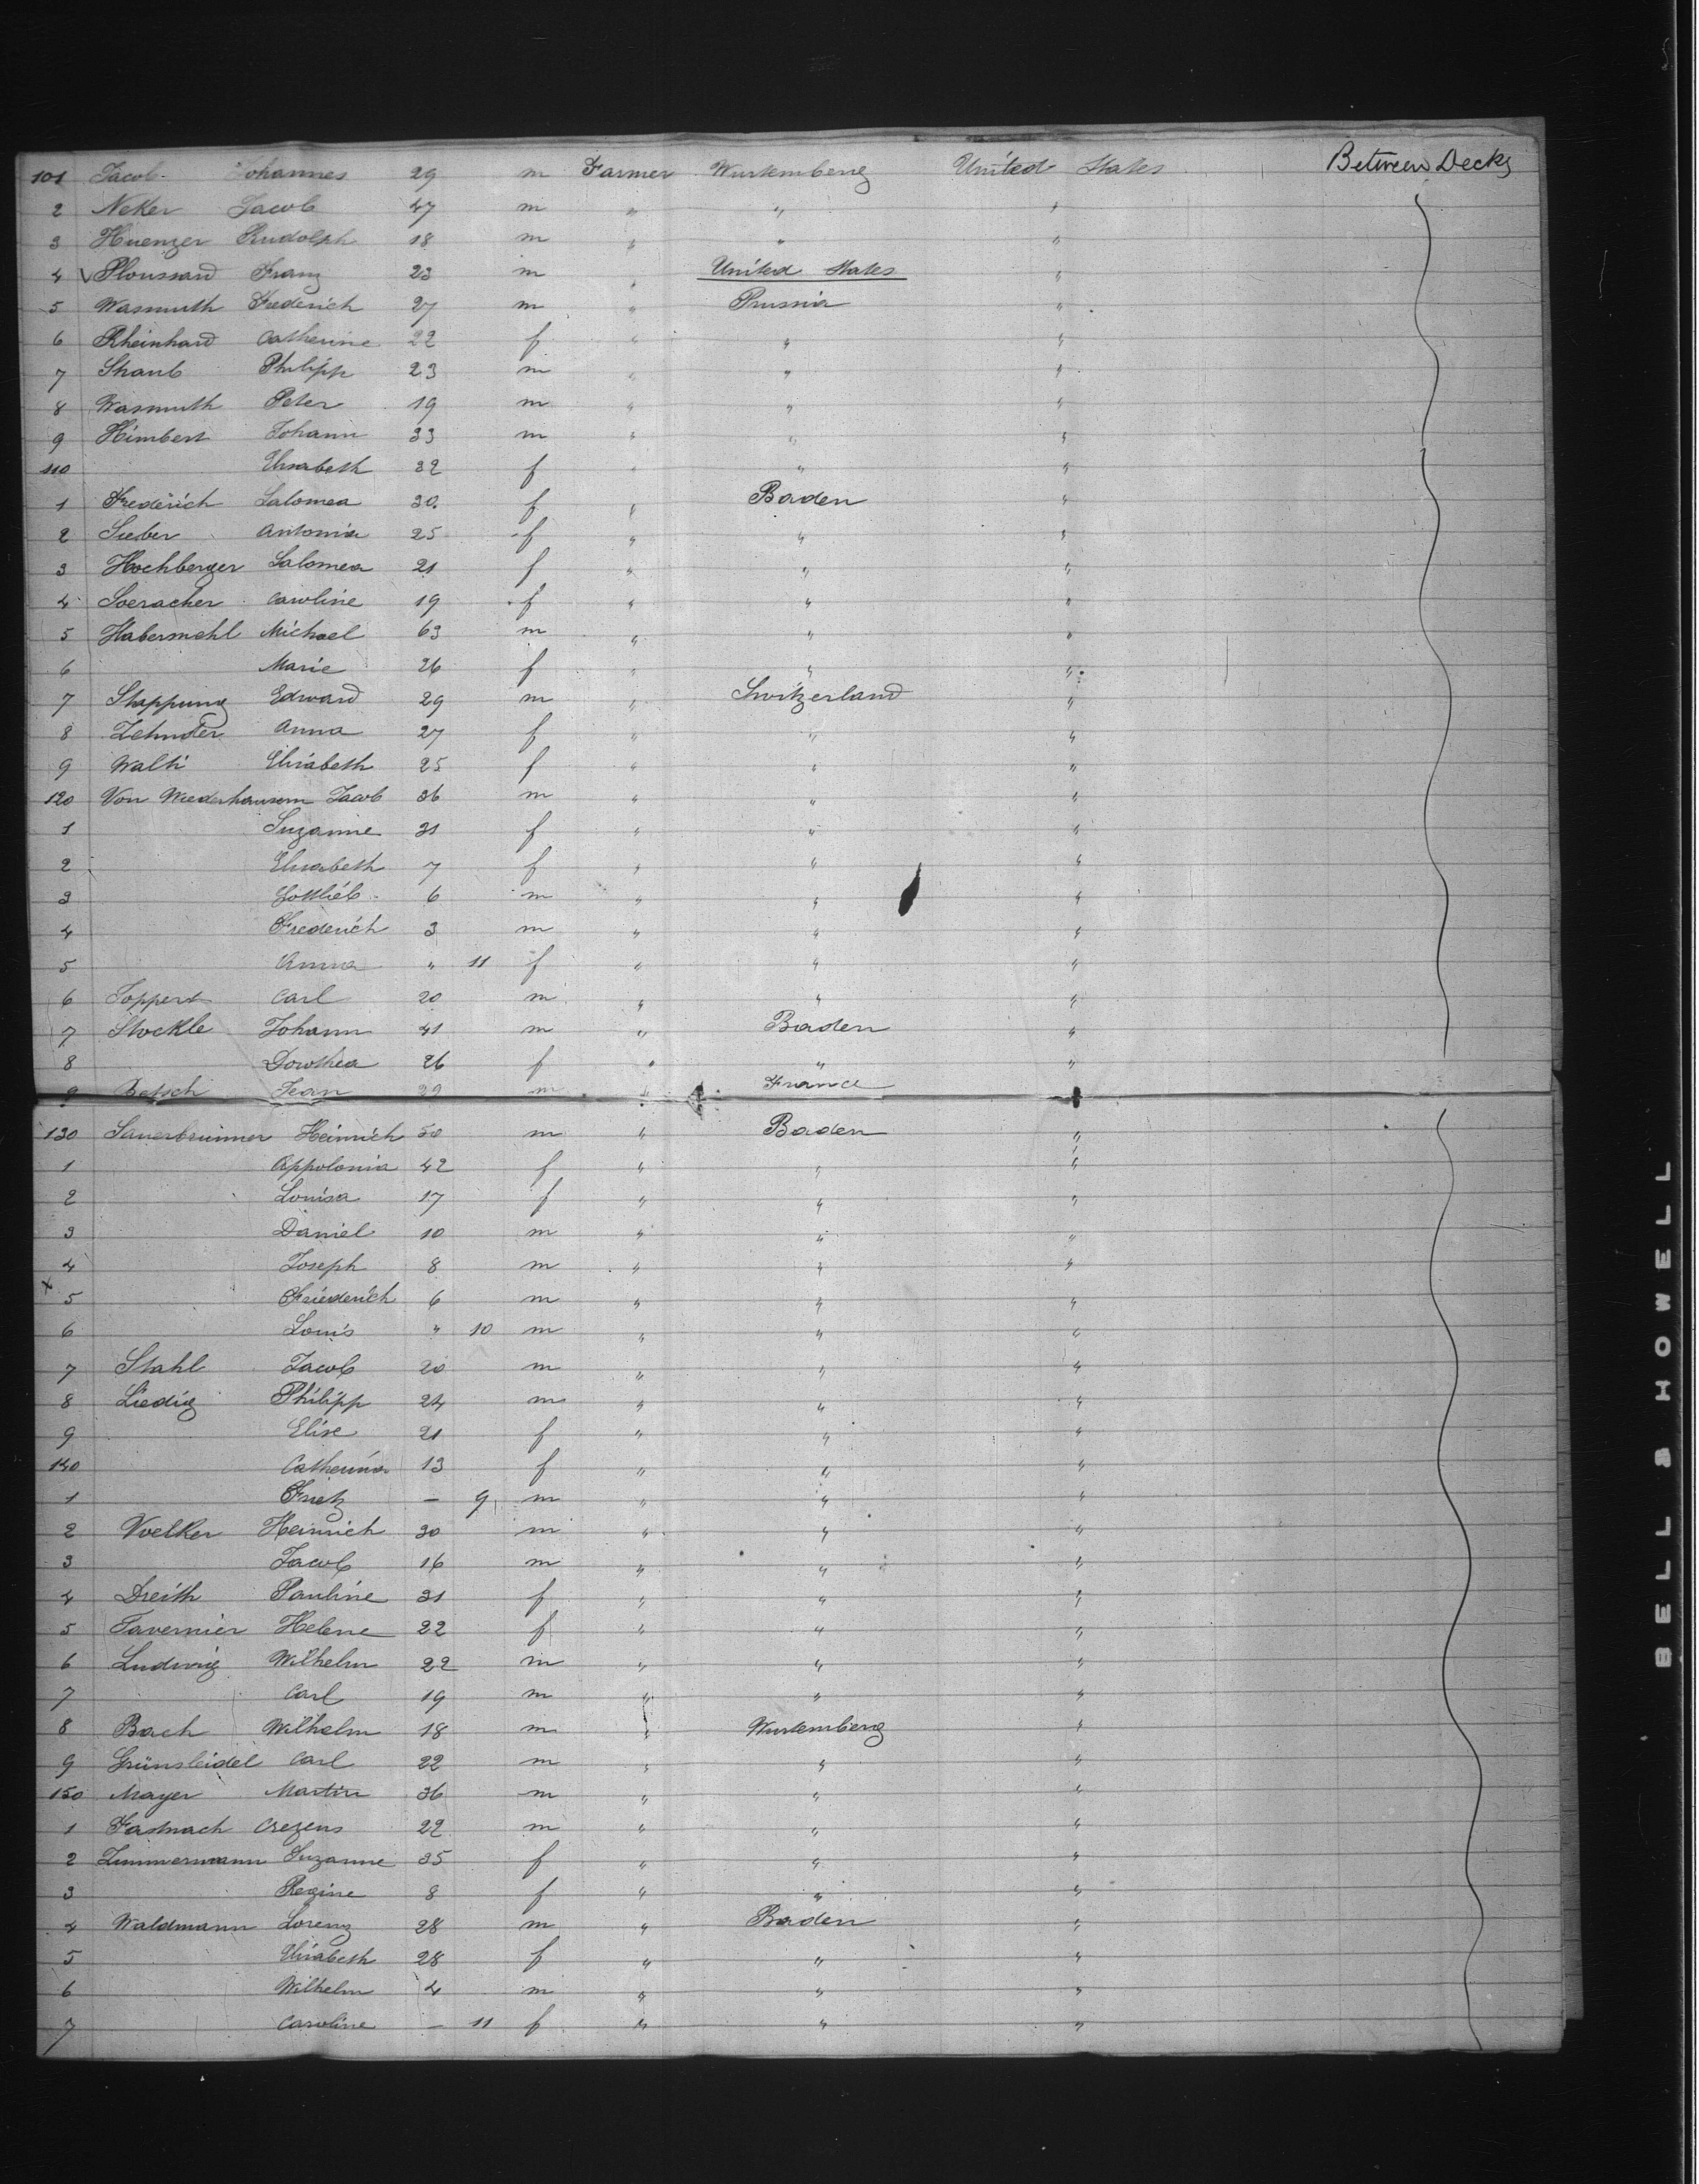 101 Jacob Johannes 29 m Farmer Wurtemberg United States Between Decks
2 Neker Jacob 47 m " " "
3 Huenger Rudolph 18 m " " "
4 Ploussard Franz 23 m " United States "
5 Wasmuth Frederich 27 m " Prussia "
6 Rheinhard Catherine 22 f " " "
7 Staub Philipp 23 m " " "
8 Wasmuth Peter 19 m " " "
9 Himbert Johann 33 m " " "
110 Elisabeth 32 f " " "
1 Frederich Salomea 30 f " Baden "
2 Sieber Antonia 25 f " " "
3 Hochberger Salomea 21 f " " "
4 Soeracher Caroline 19 f " " "
5 Habermehl Michael 63 m " " "
6 Marie 26 f " " "
7 Stappung Edward 29 m " Switzerland "
8 Zehnder Anna 27 f " " "
9 Walti Elisabeth 25 f " " "
120 Von Wiederhausern Jacob 36 m " " "
1 Suzanne 31 f " " "
2 Elisabeth 7 f " " "
3 Gottlieb 6 m " " "
4 Frederich 3 m " " "
5 Anna " 11 f " " "
6 Toppert Carl 20 m " " "
7 Stockle Johann 41 m " Baden "
8 Dorothea 26 f " " "
9 Betsch Jean 39 m " France "
130 Sauerbrunner Heinrich 50 m " Baden "
1 Appolonia 42 f " " "
2 Louisa 17 f " " "
3 Daniel 10 m " " "
4 Joseph 8 m " " "
x 5 Friederich 6 m " " "
6 Louis " 10 m " " "
7 Stahl Jacob 20 m " " "
8 Liedig Philipp 24 m " " "
9 Elise 21 f " " "
140 Catherina 13 f " " "
1 Fritz — 9 m " " "
2 Voelker Heinrich 30 m " " "
3 Jacob 16 m " " "
4 Dreith Pauline 31 f " " "
5 Tavernier Helene 22 f " " "
6 Ludwig Wilhelm 22 m " " "
7 Carl 19 m " " "
8 Bach Wilhelm 18 m " Wurtemberg "
9 Grünsleidel Carl 22 m " " "
150 Mayer Martin 36 m " " "
1 Fastnach Crezens 22 m " " "
2 Zimmermann Suzanne 35 f " " "
3 Regine 8 f " " "
4 Waldmann Lorenz 28 m " Baden "
5 Elisabeth 28 f " " "
6 Wilhelm 4 m " " "
7 Caroline — 11 f " " "
BELL & HOWELL